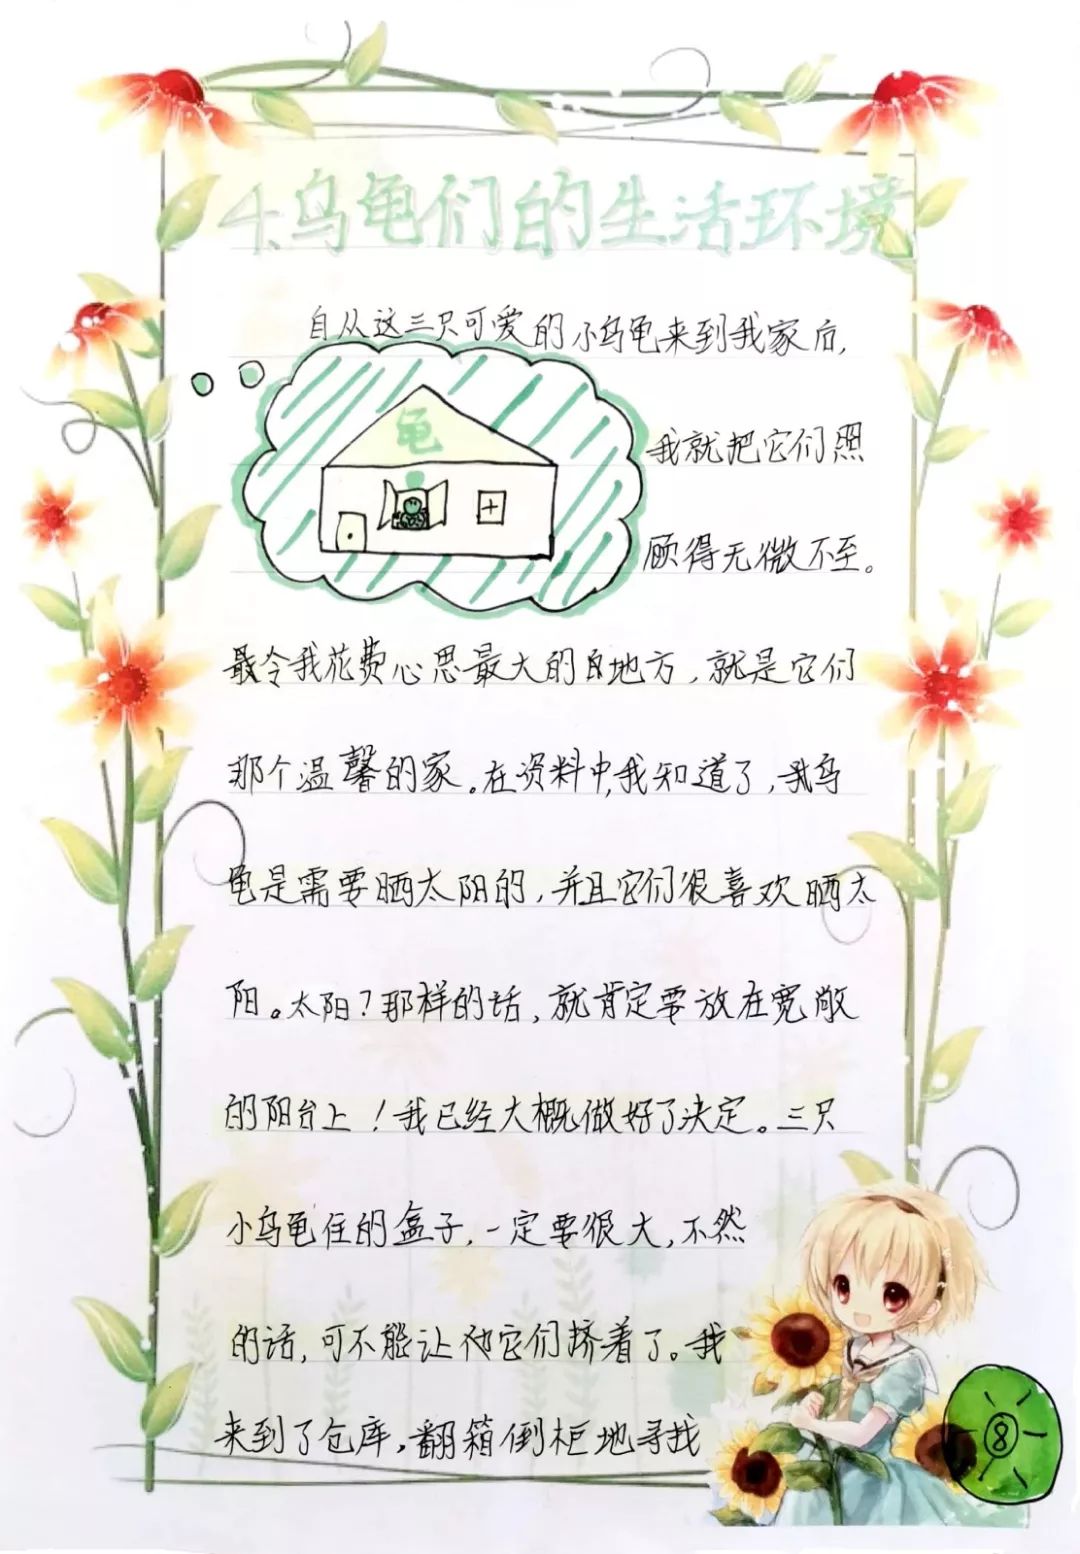 4.乌龟们的生活环境
自从这三只可爱的小乌龟来到我家后,
龟
我就把它们照
顾得无微不至。
最令我花费心思最大的地方,就是它们
那个温馨的家。在资料中,我知道了,乌
龟是需要晒太阳的,并且它们很喜欢晒太
阳。太阳?那样的话,就肯定要放在宽敞
的阳台上!我已经大概做好了决定。三只
小乌龟住的盒子,一定要很大,不然
的话,可不能让它们挤着了。我
来到了仓库,翻箱倒柜地寻找
8